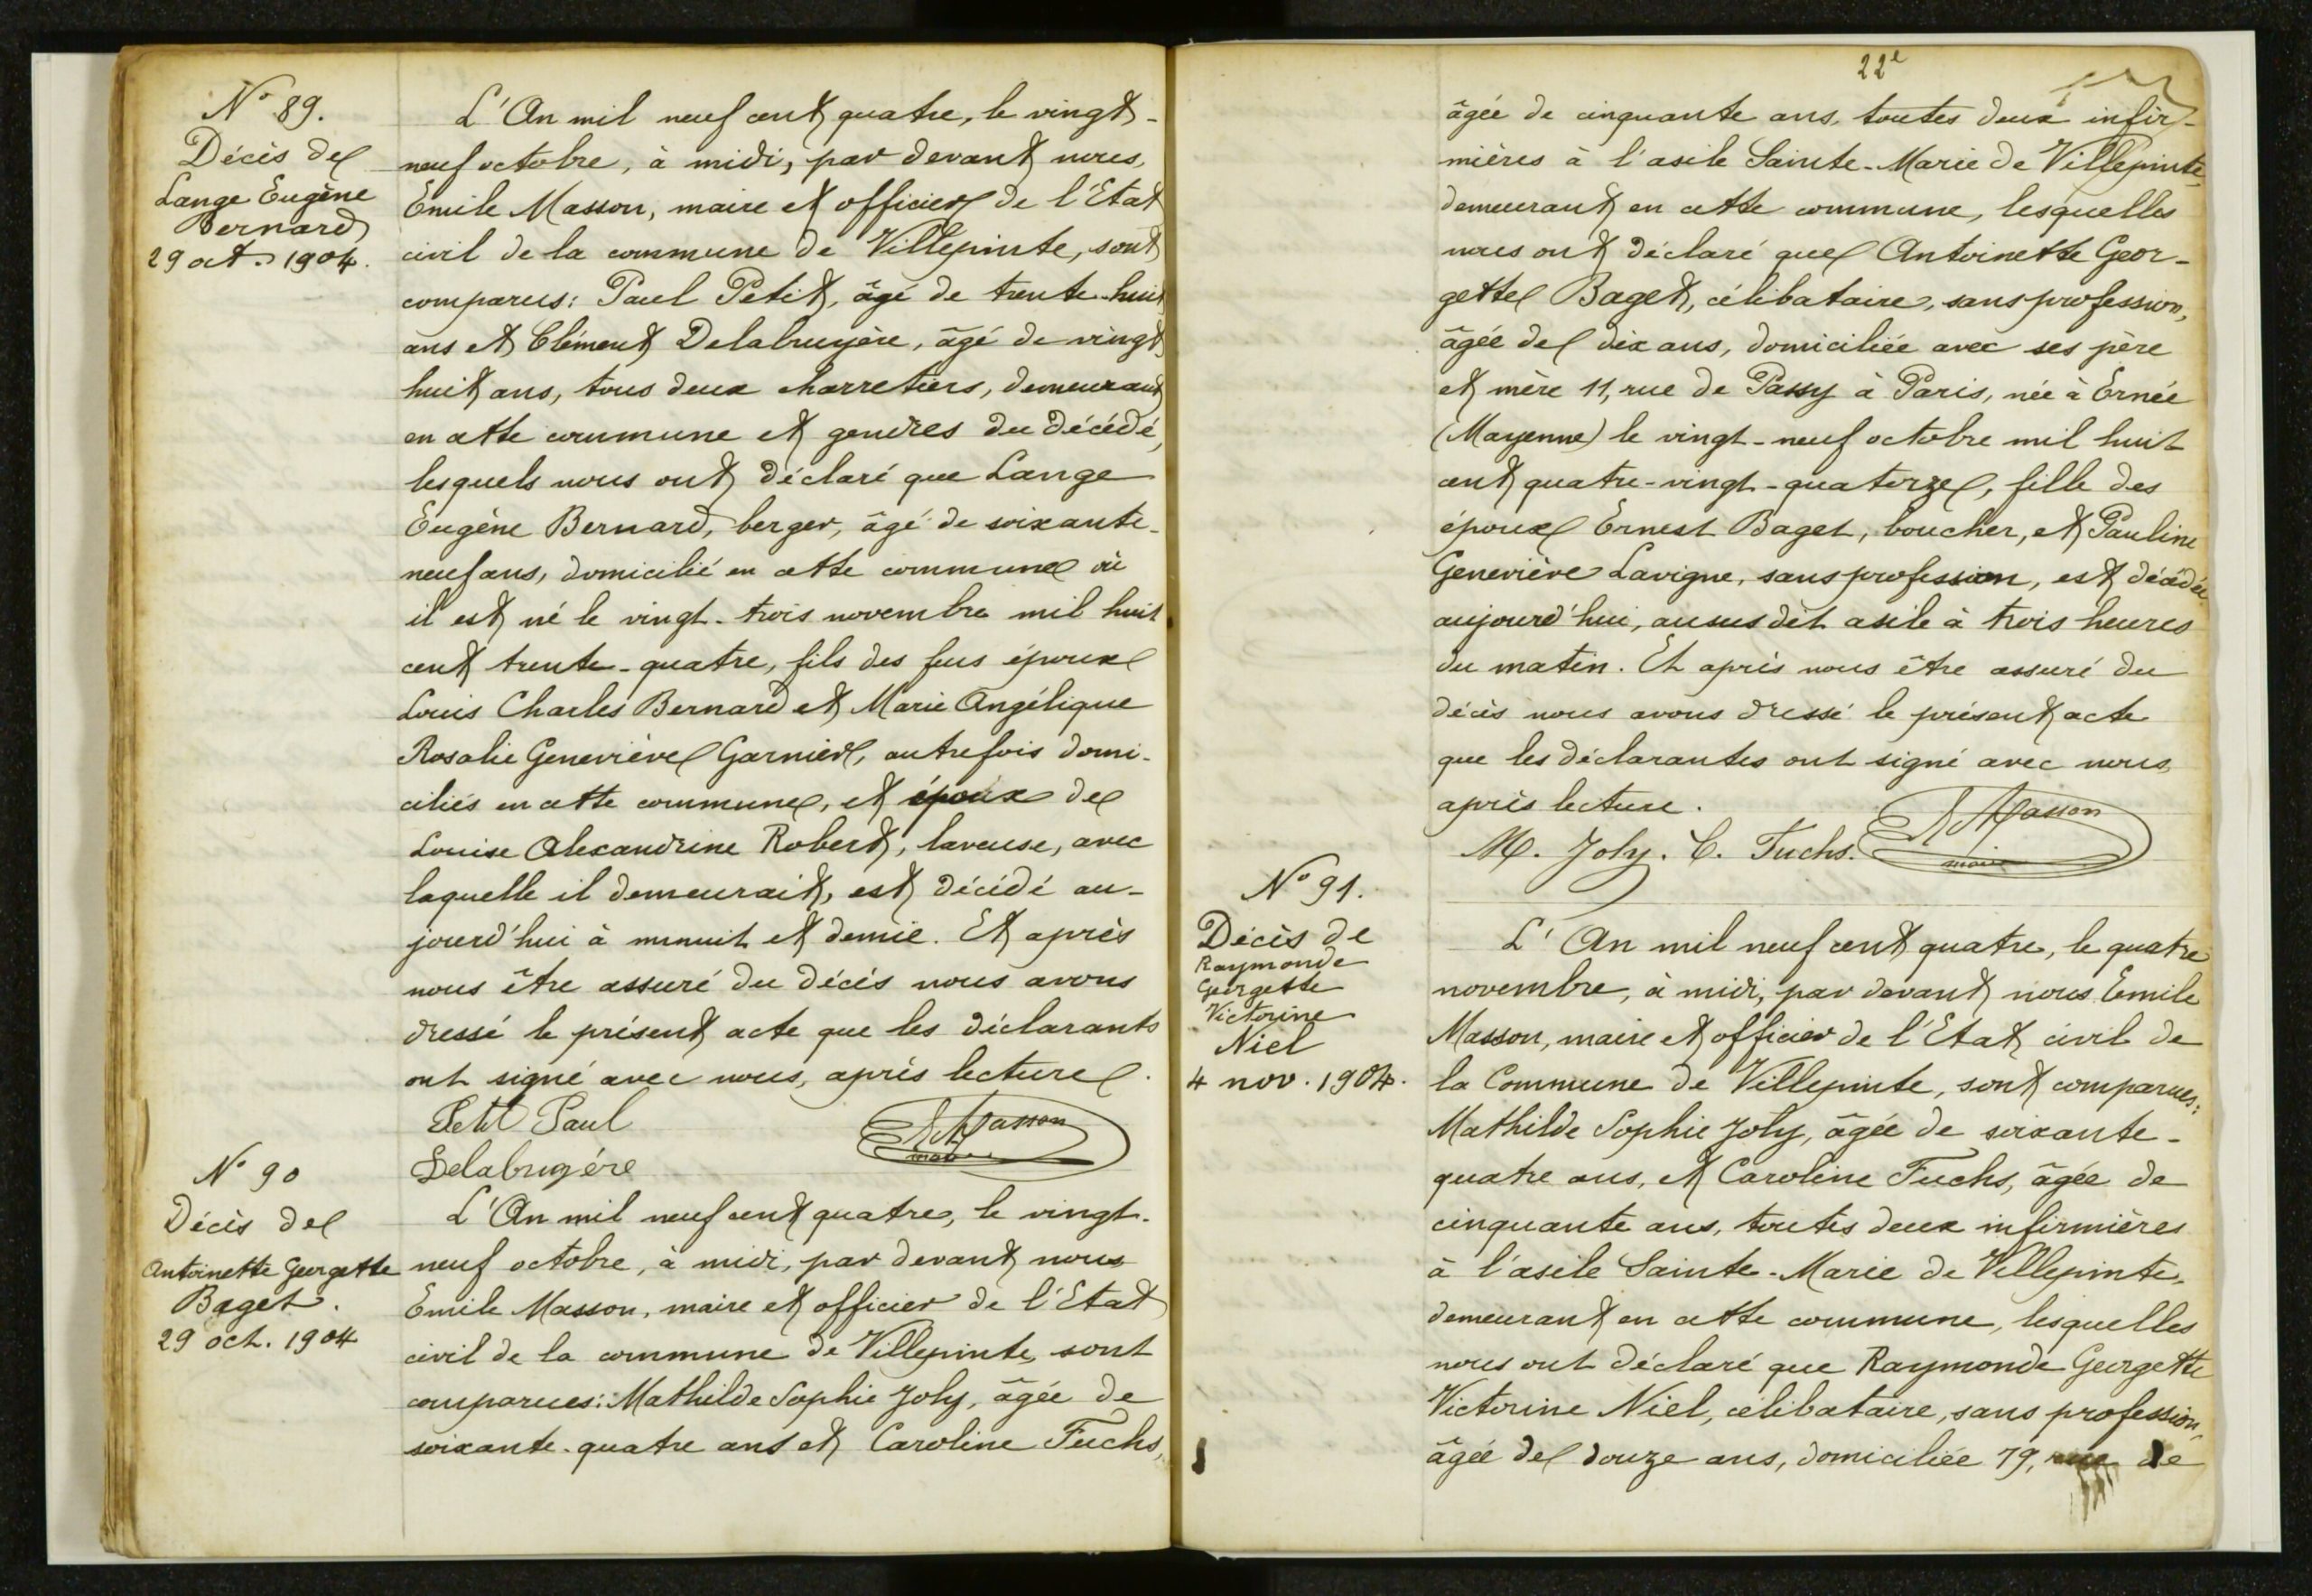 N° 89.
Décès de
Lange Eugène
Bernard
29 oct. 1904.
L'An mil neuf cent quatre, le vingt-
neuf octobre, à midi, par devant nous,
Emile Masson, maire et officier de l'Etat
civil de la commune de Villepinte, sont
comparus: Paul Petit, âgé de trente-huit
ans et Clément Delabruyère, âgé de vingt
huit ans, tous deux charretiers, demeurant
en cette commune et gendres du décédé,
lesquels nous ont déclaré que Lange
Eugène Bernard, berger, âgé de soixante-
neuf ans, domicilié en cette commune où
il est né le vingt-trois novembre mil huit
cent trente-quatre, fils des feus époux
Louis Charles Bernard et Marie Angélique
Rosalie Geneviève Garnier, autrefois domi-
ciliés en cette commune, et époux de
Louise Alexandrine Robert, laveuse, avec
laquelle il demeurait, est décédé au-
jourd'hui à minuit et demie. Et après
nous être assuré du décès nous avons
dressé le présent acte que les déclarants
ont signé avec nous, après lecture.
Petit Paul
Delabruyére
E Masson
maire
N° 90
Décès de
Antoinette Georgette
Baget.
29 oct. 1904
L'An mil neuf cent quatre, le vingt-
neuf octobre, à midi, par devant nous
Emile Masson, maire et officier de l'Etat
civil de la commune de Villepinte, sont
comparues: Mathilde Sophie Joly, âgée de
soixante-quatre ans et Caroline Fuchs,
22e
âgée de cinquante ans, toutes deux infir-
mières à l'asile Sainte-Marie de Villepinte,
demeurant en cette commune, lesquelles
nous ont déclaré que Antoinette Geor-
gette Baget, célibataire, sans profession,
âgée de dix ans, domiciliée avec ses père
et mère 11, rue de Passy à Paris, née à Ernée
(Mayenne) le vingt-neuf octobre mil huit
cent quatre-vingt-quatorze, fille des
époux Ernest Baget, boucher, et Pauline
Geneviève Lavigne, sans profession, est décédée
aujourd'hui, au susdit asile à trois heures
du matin. Et après nous être assuré du
décès nous avons dressé le présent acte
que les déclarantes ont signé avec nous,
après lecture.
M. Joly. C. Fuchs.
E Masson
maire
N° 91.
Décès de
Raymonde
Georgette
Victorine
Niel
4 nov. 1904.
L'An mil neuf cent quatre, le quatre
novembre, à midi, par devant nous Emile
Masson, maire et officier de l'Etat civil de
la Commune de Villepinte, sont comparues:
Mathilde Sophie Joly, âgée de soixante-
quatre ans, et Caroline Fuchs, âgée de
cinquante ans, toutes deux infirmières
à l'asile Sainte-Marie de Villepinte,
demeurant en cette commune, lesquelles
nous ont déclaré que Raymonde Georgette
Victorine Niel, célibataire, sans profession,
âgée de douze ans, domiciliée 79, rue de